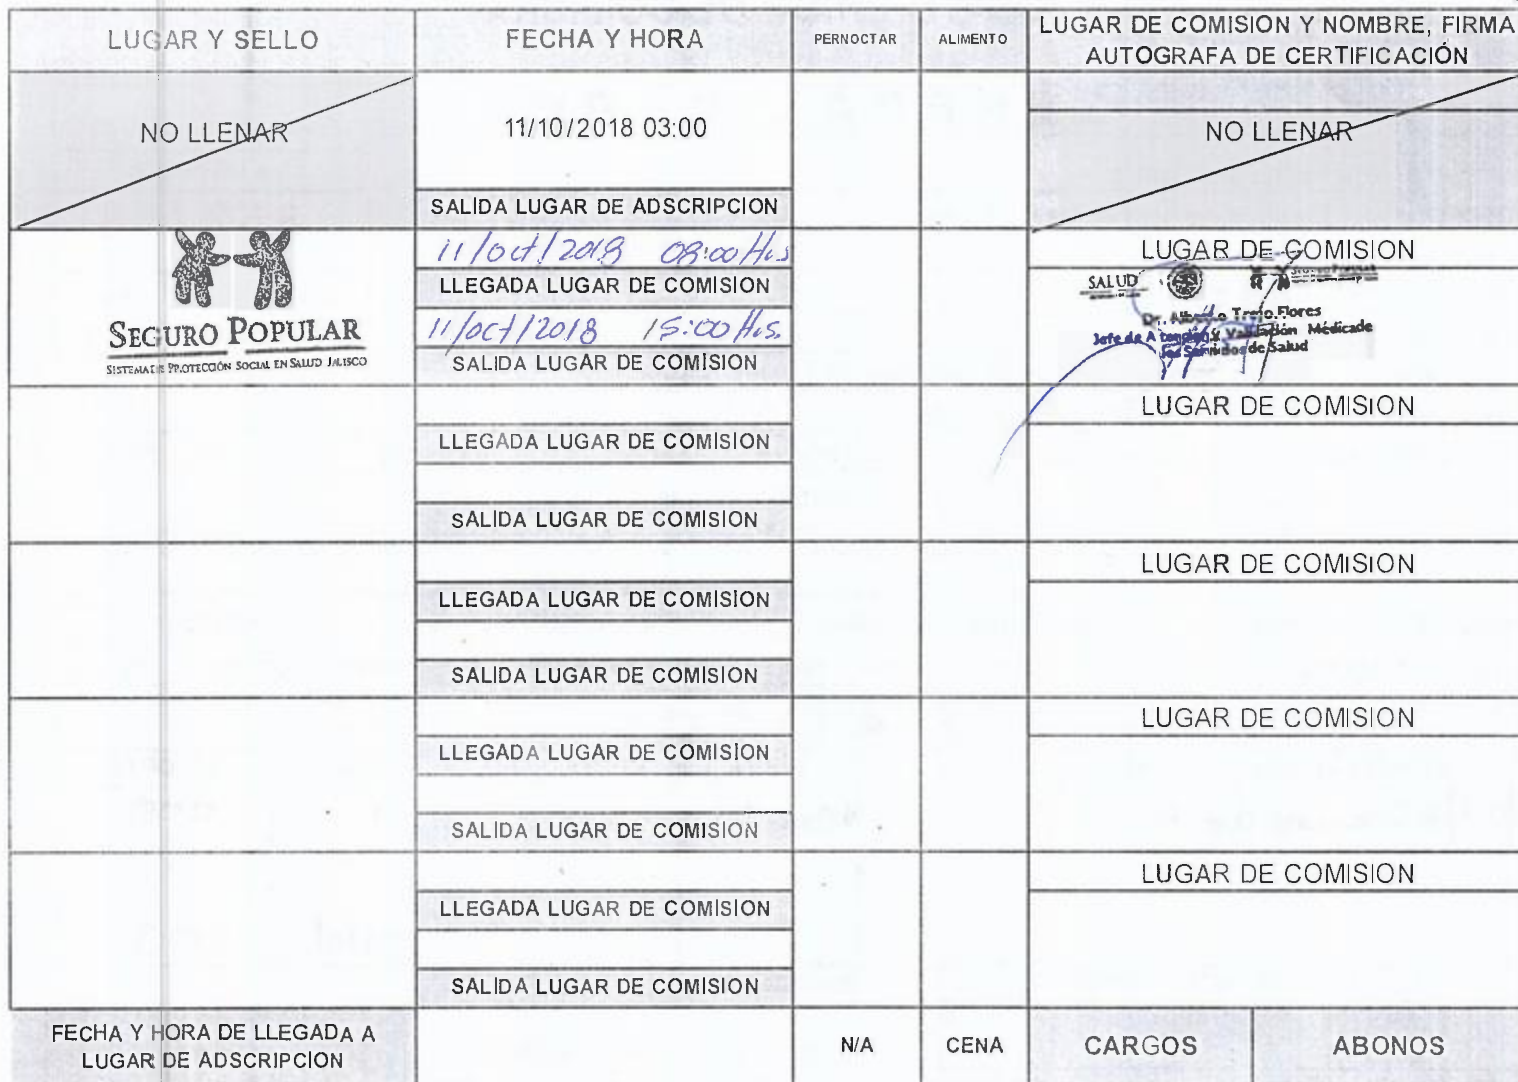 LUGAR Y SELLO
FECHA Y HORA
PERNOCTAR
ALIMENTO
LUGAR DE COMISION Y NOMBRE, FIRMA
AUTOGRAFA DE CERTIFICACIÓN
NO LLENAR
11/10/2018 03:00
NO LLENAR
SALIDA LUGAR DE ADSCRIPCION
SEGURO POPULAR
SISTEMA DE PROTECCIÓN SOCIAL EN SALUD JALISCO
11/oct/2018 08:00 Hrs
LLEGADA LUGAR DE COMISION
11/oct/2018 15:00 Hrs.
SALIDA LUGAR DE COMISION
LUGAR DE COMISION
SALUD
Dr. Alberto Trejo Flores
Jefe de Atención y Validación Médica de
los Servicios de Salud
LUGAR DE COMISION
LLEGADA LUGAR DE COMISION
SALIDA LUGAR DE COMISION
LUGAR DE COMISION
LLEGADA LUGAR DE COMISION
SALIDA LUGAR DE COMISION
LUGAR DE COMISION
LLEGADA LUGAR DE COMISION
SALIDA LUGAR DE COMISION
LUGAR DE COMISION
LLEGADA LUGAR DE COMISION
SALIDA LUGAR DE COMISION
FECHA Y HORA DE LLEGADA A
LUGAR DE ADSCRIPCION
N/A
CENA
CARGOS
ABONOS